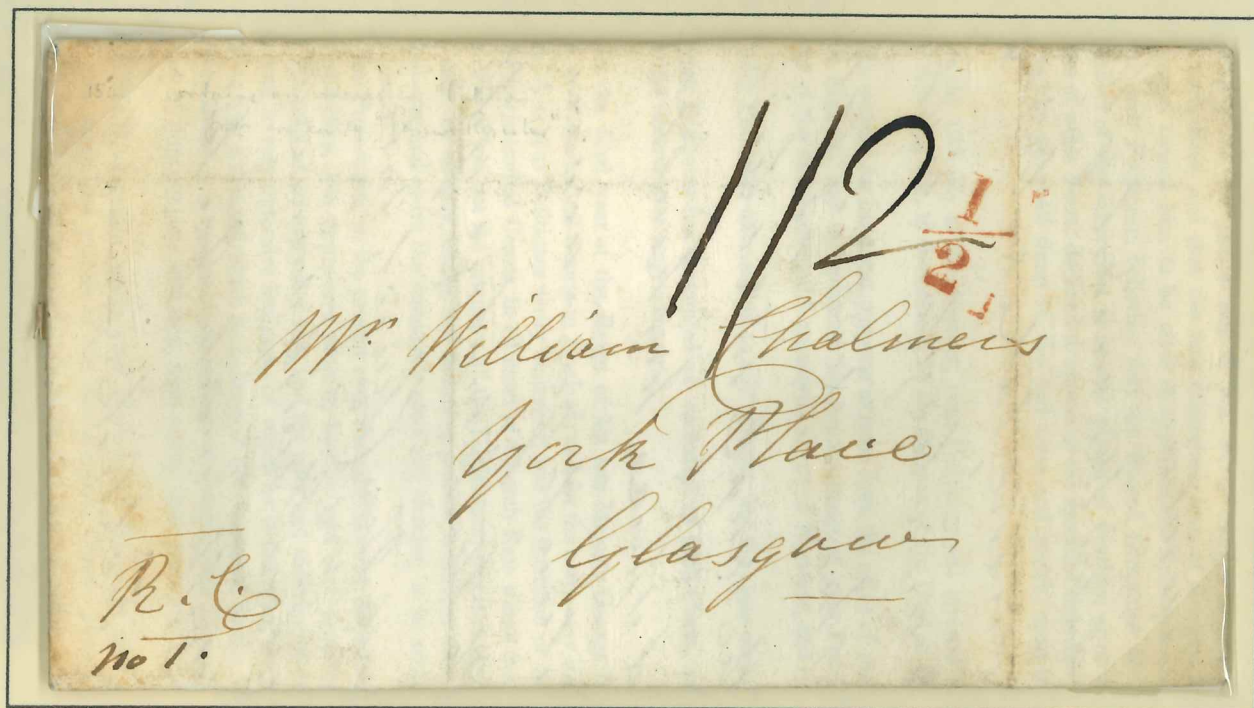 1/2
1/2
Mr. William Chalmers
York Place
Glasgow
R. C.
No 1.